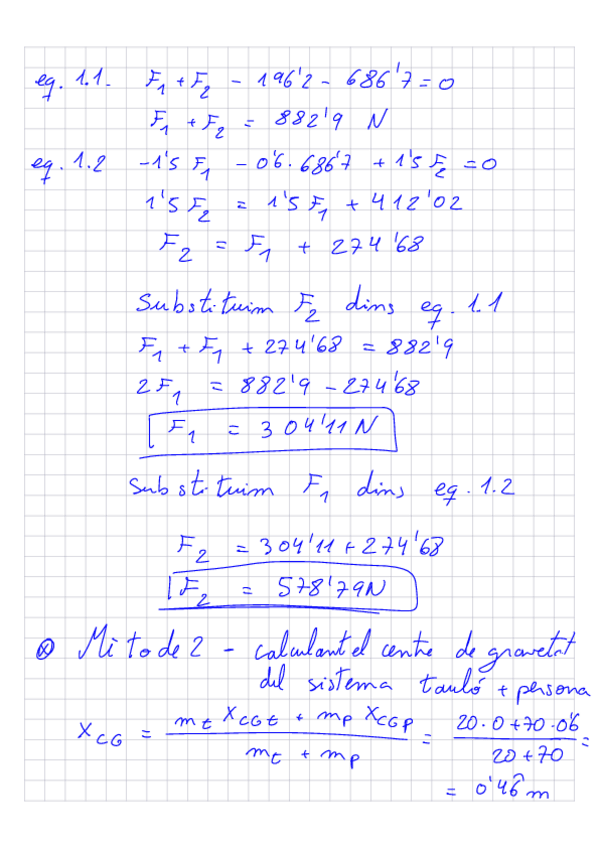 eq. 1.1. F₁ + F₂ - 196'2 - 686'7 = 0
F₁ + F₂ = 882'9 N
eq. 1.2 -1'5 F₁ - 0'6 · 686'7 + 1'5 F₂ = 0
1'5 F₂ = 1'5 F₁ + 412'02
F₂ = F₁ + 274'68
Substituim F₂ dins eq. 1.1
F₁ + F₁ + 274'68 = 882'9
2 F₁ = 882'9 - 274'68
F₁ = 304'11 N
Substituim F₁ dins eq. 1.2
F₂ = 304'11 + 274'68
F₂ = 578'79 N
⊗ Mètode 2 - calculant el centre de gravetat
del sistema tauló + persona
X_CG = (m_t X_CGt + m_p X_CGp) / (m_t + m_p) = (20·0 + 70·0'6) / (20 + 70) =
= 0'46̂ m